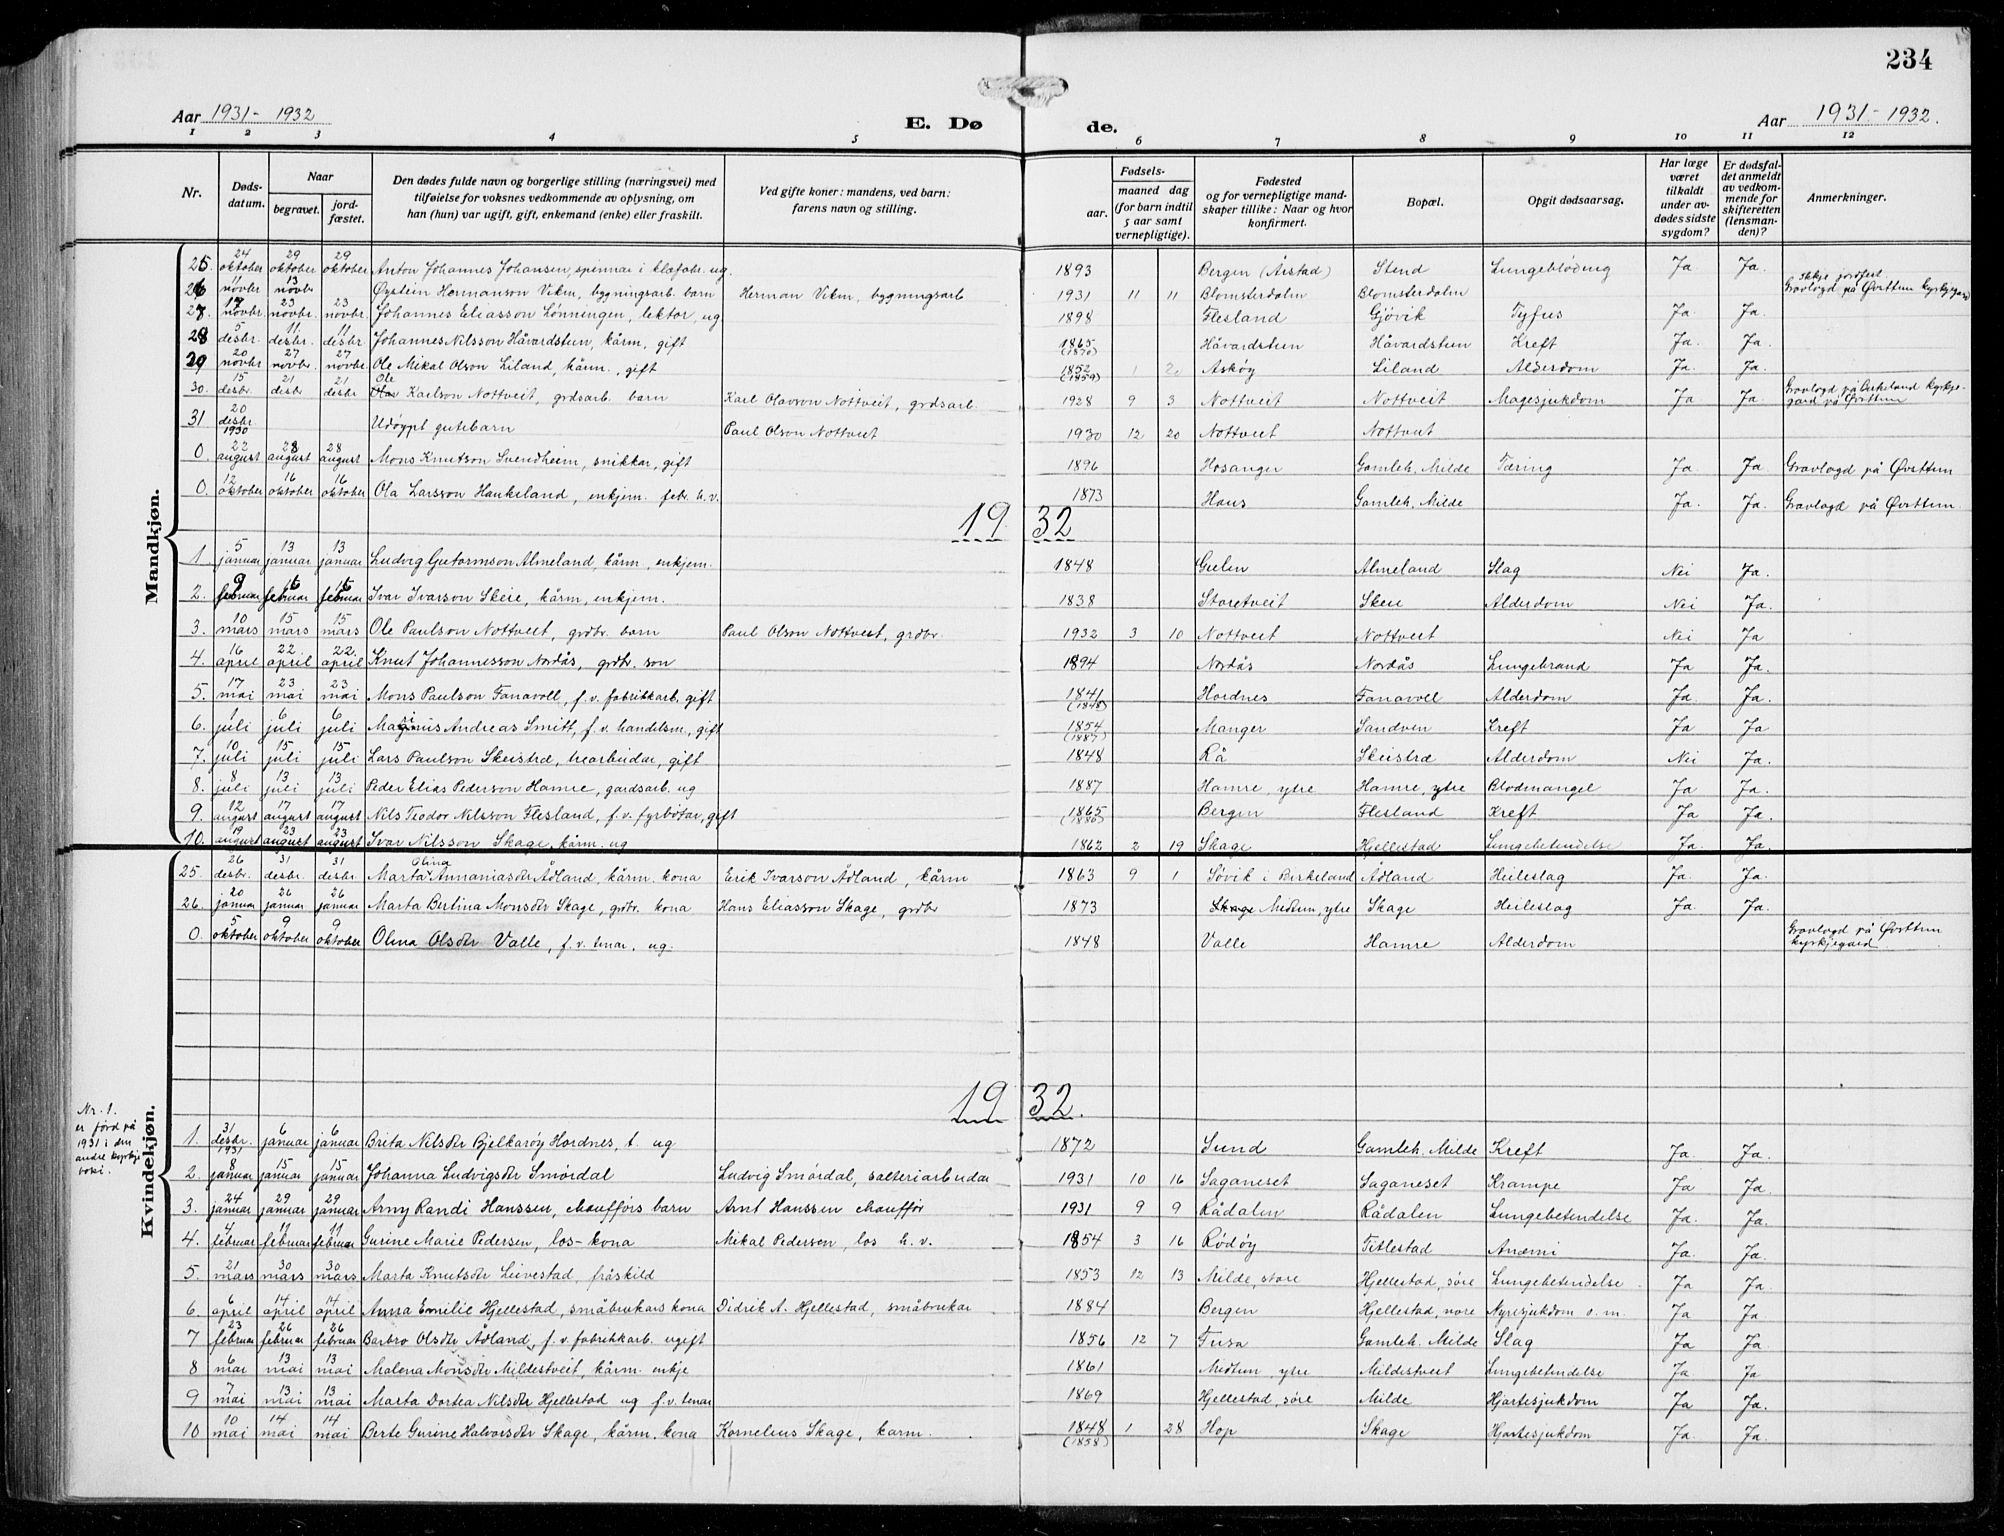 234
Aar 1931 - 1932
E. Dø de.
Aar 1931 - 1932.
1 2 3 4 5 6 7 8 9 10 11 12
Nr.
Døds-datum.
Naar
begravet.
jord-fæstet.
Den dødes fulde navn og borgerlige stilling (næringsvei) med tilføielse for voksnes vedkommende av oplysning, om han (hun) var ugift, gift, enkemand (enke) eller fraskilt.
Ved gifte koner: mandens, ved barn: farens navn og stilling.
Fødsels-
aar.
maaned dag (for barn indtil 5 aar samt vernepligtige).
Fødested og for vernepligtige mandskaper tillike: Naar og hvor konfirmert.
Bopæl.
Opgit dødsaarsag.
Har læge været tilkaldt under avdødes sidste sygdom?
Er dødsfaldet anmeldt av vedkommende for skifteretten (lensmanden)?
Anmerkninger.
Mandkjøn.
25. 24 oktober 29 oktober 29 oktober Anton Johannes Johansen, spinnar i klæfabr. ug. 1893 Bergen (Årstad) Stend Lungebløding Ja Ja.
26 11 novbr 13 novbr Øystein Hermanson Vikm, bygningsarb. barn Herman Vikm, bygningsarb 1931 11 11 Blomsterdalm Blomsterdalm Ikkje jordfest. Gravlagd på Øvsttun kyrkjegard
27. 17 novbr. 23 novbr. 23 novbr. Johannes Eliasson Lønningen, lektor, ug. 1898 Flesland Gjøvik Tyfus Ja. Ja.
28 5 desbr. 11 desbr. 11 desbr Johannes Nilsson Håvardstun, kårm, gift 1865 (1870) Håvardstun Håvardstun Kreft Ja. Ja.
29 20 novbr 27 novbr. 27 novbr. Ole Mikal Olson Liland, kårm., gift 1852 (1859) 1 20 Askøy Liland Alderdom Ja. Ja.
30. 15 desbr. 21 desbr 21 desbr Ole Karlson Nottveit, grdsarb. barn Karl Olavson Nottveit, grdsarb. 1928 9 3 Nottveit Nottveit Magesjukdom Ja Ja. Gravlagd på Birkeland kyrkjegard på Øvsttun
31 20 desbr. 1930 Udøypt gutebarn Paul Olson Nottveit 1930 12 20 Nottveit Nottveit
0. 22 august 28 august 28 august Mons Knutson Svendheim, snikkar, gift 1896 Hosanger Gamleh. Milde Tæring Ja Ja Gravlagd på Øvsttun
0. 12 oktober 16 oktober 16 oktober Ola Larsson Haukeland, enkjem. fabr. h. v. 1873 Haus Gamleh. Milde Ja. Ja. Gravlagd på Øvsttun.
19 32
1. 5 januar 13 januar 13 januar Ludvig Gutormson Almeland, kårm, enkjem. 1848 Gulen Almeland Slag Nei Ja.
2. 9 februar 15 februar 15 februar Ivar Ivarson Skeie, kårm, enkjem. 1838 Storetveit Skeie Alderdom Nei Ja.
3. 10 mars 15 mars 15 mars Ole Paulson Nottveit, grdbr. barn Paul Olson Nottveit, grdbr. 1932 3 10 Nottveit Nottveit Nei Ja
4. 16 april 22 april 22. april Knut Johannesson Nordås, grdbr. son 1894 Nordås Nordås Lungebrand Ja Ja.
5. 17 mai 23 mai 23 mai Mons Paulson Fanavoll, f. v. fabrikkarb. gift 1841 (1848) Hordnes Fanavoll Alderdom Ja. Ja.
6. 1 juli 6 juli 6 juli Marinius Andreas Smitt, f. v. handelsm., gift 1854 (1887) Manger Sandven Kreft Ja Ja
7. 10 juli 15 juli 15. juli Lars Paulson Skeistræ, trearbeidar, gift 1848 Rå Skeistræ Alderdom Nei Ja.
8. 8 juli 13 juli 13 juli Peder Elias Pederson Hamre, gardsarb. ug 1887 Hamre, ytre Hamre, ytre Blodmangel Ja Ja.
9. 12 august 17 august 17 august Nils Teodor Nilsson Flesland, f. v. fyrbøtar, gift 1865 (1886) Bergen Flesland Kreft Ja Ja.
10. 19 august 23 august 23 august Ivar Nilsson Skage, kårm. ug 1862 2 19 Skage Hjellestad Lungebetendelse Ja. Ja.
Kvindekjøn.
25. 26 desbr. 31 desbr. 31 desbr Marta Olina Annaniasdtr Ådland, kårm. kona Erik Ivarson Ådland, kårm 1863 9 1 Søvik i Birkeland Ådland Heileslag Ja. Ja.
26. 20 januar 26 januar 26 januar Marta Berlina Monsdtr Skage, grdbr. kona Hans Eliasson Skage, grdbr 1873 Skage Midtun, ytre Skage Heileslag Ja. Ja.
0 5 oktober 9 oktober 9 oktober Olina Olsdtr Valle, f. v. tenar, ug. 1848 Valle Hamre Alderdom Gravlagd på Øvsttun kyrkjegard
19 32.
Nr. 1. er førd på 1931 i den andre kyrkjeboki.
1. 31 desbr. 1931 6 januar 6 januar Brita Nilsdtr Bjelkarøy Hordnes, t. ug 1872 Sund Gamleh. Milde Kreft Ja. Ja.
2. 8 januar 15 januar 15 januar Johanna Ludvigsdtr Smørdal Ludvig Smørdal, salteriarbeidar 1931 10 16 Saganeset Saganeset Krampe Ja Ja.
3. 24 januar 29 januar 29 januar Arny Randi Hanssen, chaufførs barn Arnt Hanssen chauffør 1931 9 9 Rådalen Rådalen Lungebetendelse Ja. Ja.
4. 4 februar 11 februar 11 februar Gurine Marie Pedersen, los-kona Mikal Pedersen, los h. v. 1854 3 16 Rødøy Titlestad Anæmi Ja. Ja.
5. 21 mars 30 mars 30 mars Marta Knutsdtr Leivestad, fråskild 1853 12 13 Milde, store Hjellestad, søre Lungebetendelse Ja Ja.
6. 6 april 14 april 14 april Anna Emilie Hjellestad, småbrukars kona Didrik A. Hjellestad, småbrukar 1884 Bergen Hjellestad, nore Nyresjukdom o. m. Ja Ja.
7 23 februar 26 februar 26 februar Barbro Olsdtr Ådland, f. v. fabrikkarb. ugift 1856 12 7 Fusa Gamleh. Milde Slag Ja Ja.
8 6 mai 13 mai 13 mai Malena Monsdtr Mildestveit, kårm. enkje 1861 Midtun, ytre Mildestveit Lungebetendelse Ja Ja
9 7 mai 13 mai 13 mai Marta Dortea Nilsdtr Hjellestad ug f. v. tenar 1869 Hjellestad, søre Milde Hjartesjukdom Ja Ja.
10 10 mai 14 mai 14 mai Berte Gurine Halvorsdtr Skage, kårm. kona Kornelius Skage, kårm. 1848 (1858) 1 28 Hop Skage Hjartesjukdom Ja. Ja.